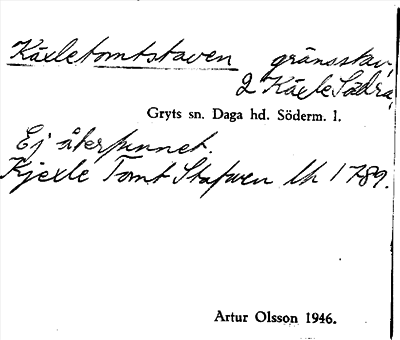 Käxletomtstaven gränsstav,
2 Käxle Södra,
Gryts sn. Daga hd. Söderm. l.
Ej återfunnet.
Kjexle Tomt Stafwen lh 1789.
Artur Olsson 1946.